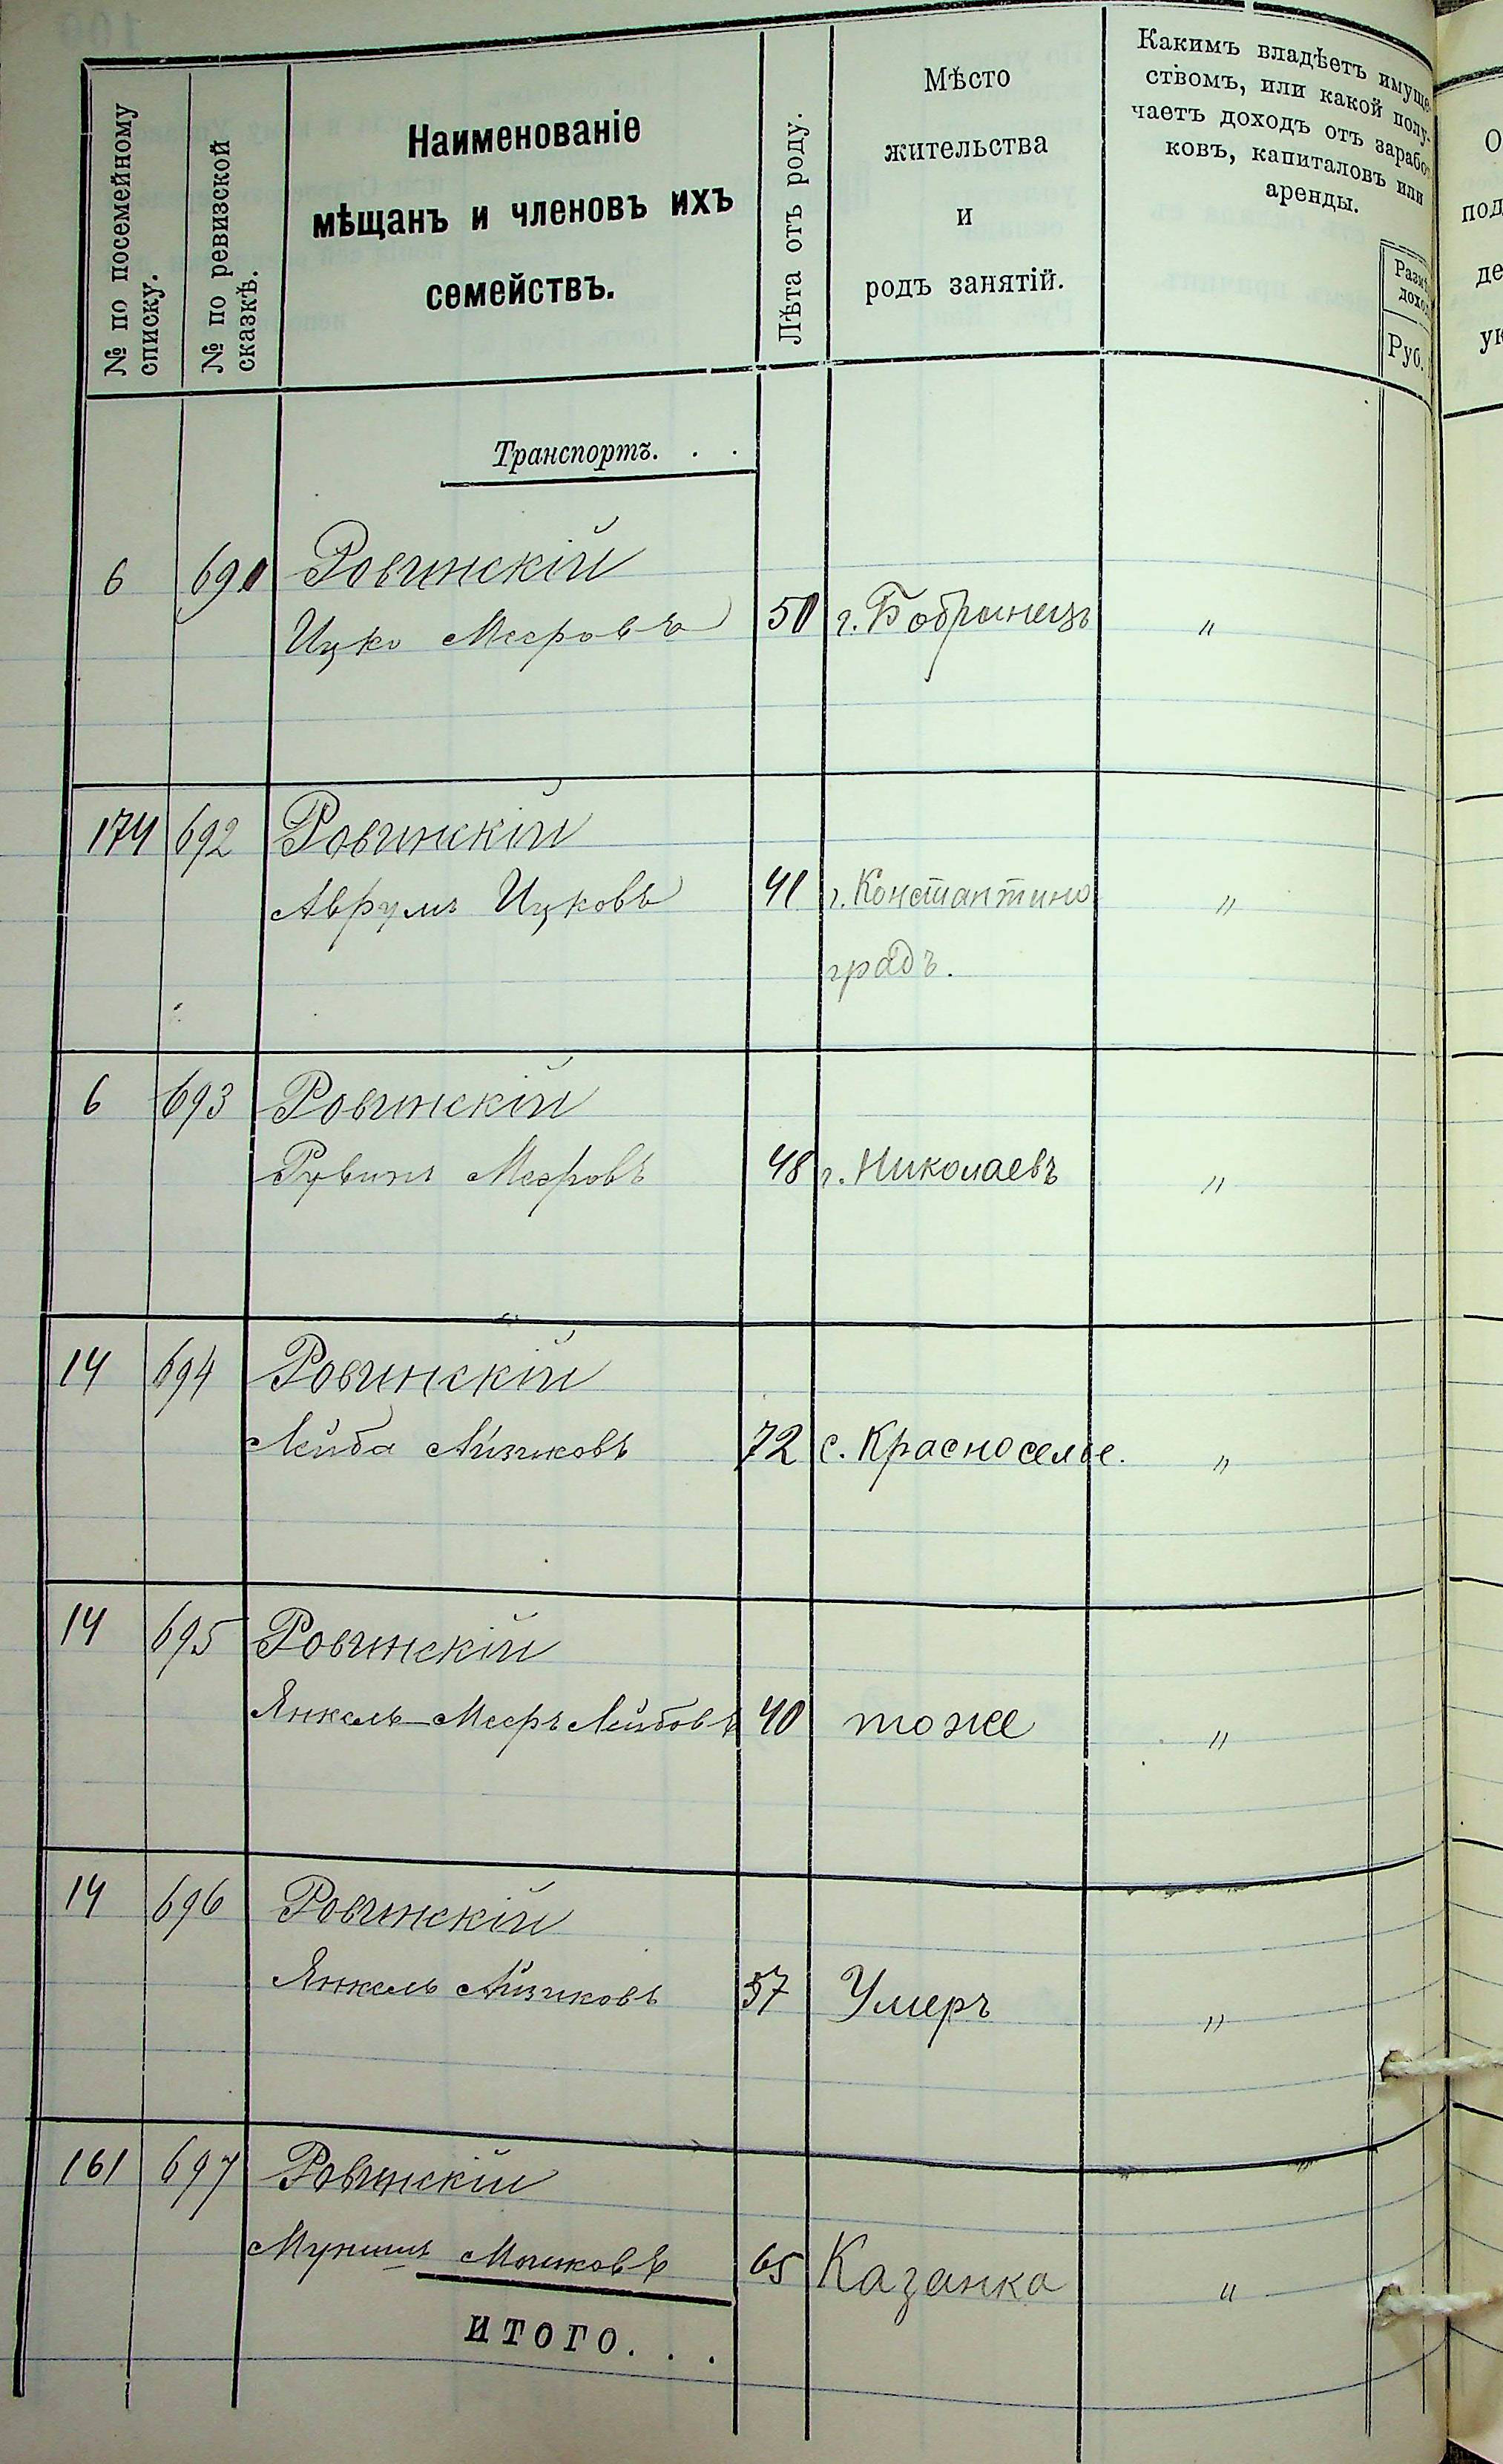 № по посемейному
списку.
№ по ревизской
сказкѣ.
Наименованіе
мѣщанъ и членовъ ихъ
семействъ.
Лѣта отъ роду.
Мѣсто
жительства
и
родъ занятій.
Какимъ владѣетъ имуще-
ствомъ, или какой полу-
чаетъ доходъ отъ заработ
ковъ, капиталовъ или
аренды.
Руб.
Транспортъ. . .
6 690 Ровинскій
Ицко Мееровъ 50 г. Бобринецъ "
174 692 Ровинскій
Аврумъ Ицковъ 41 г. Константино
градъ. "
6 693 Ровинскій
Рувинъ Мееровъ 48 г. Николаевъ "
14 694 Ровинскій
Лейба Айзиковъ 72 с. Красноселье. "
14 695 Ровинскій
Янкель-Мееръ Лейбовъ 40 тоже "
14 696 Ровинскій
Янкель Айзиковъ 57 Умеръ "
161 697 Ровинскій
Мошковъ 65 Казанка "
ИТОГО. . .